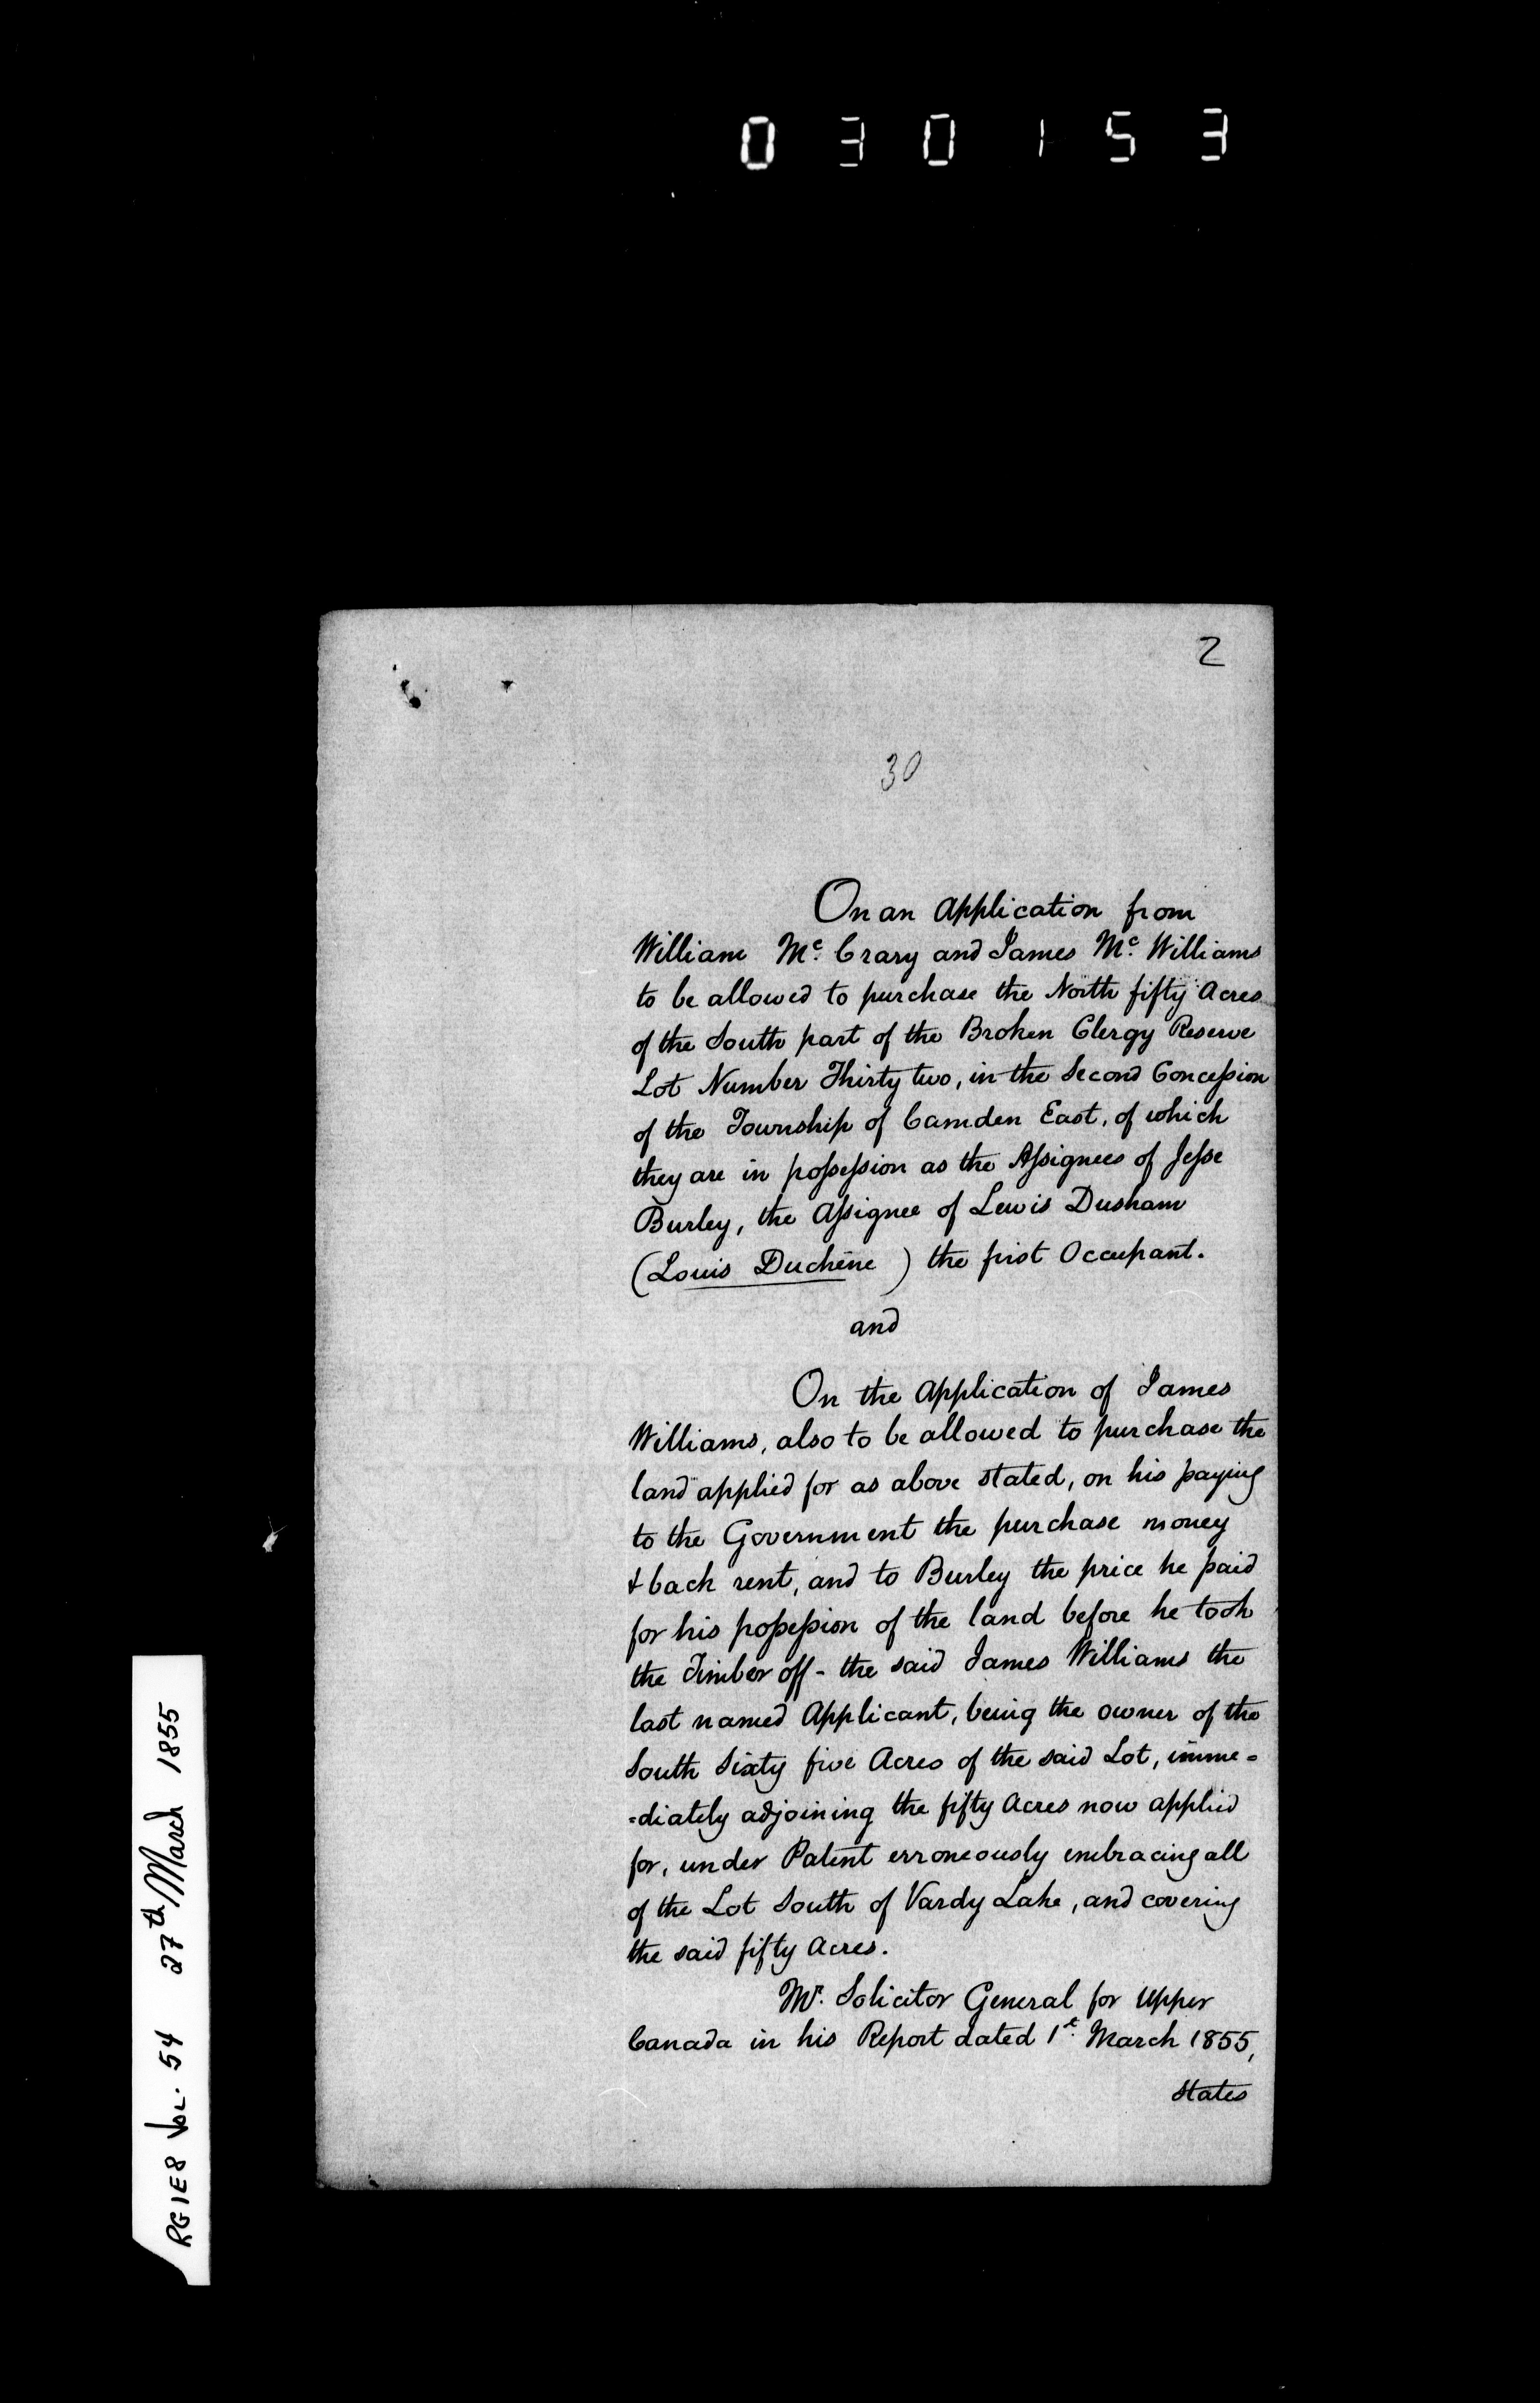 030153
2
30
On an Application from
William Mc. Crary and James Mc. Williams
to be allowed to purchase the North fifty Acres
of the South part of the Broken Clergy Reserve
Lot Number Thirty two, in the Second Concession
of the Township of Camden East, of which
they are in possession as the Assignees of Jesse
Burley, the Assignee of Lewis Dusham
(Louis Duchêne) the first Occupant.
and
On the Application of James
Williams, also to be allowed to purchase the
land applied for as above stated, on his paying
to the Government the purchase money
& back rent, and to Burley the price he paid
for his possession of the land before he took
the Timber off - the said James Williams the
last named Applicant, being the owner of the
South Sixty five Acres of the said Lot, imme=
=diately adjoining the fifty Acres now applied
for, under Patent erroneously embracing all
of the Lot South of Vardy Lake, and covering
the said fifty Acres.
Mr. Solicitor General for Upper
Canada in his Report dated 1st. March 1855,
States
RG 1 E8 Vol. 54 27th March 1855